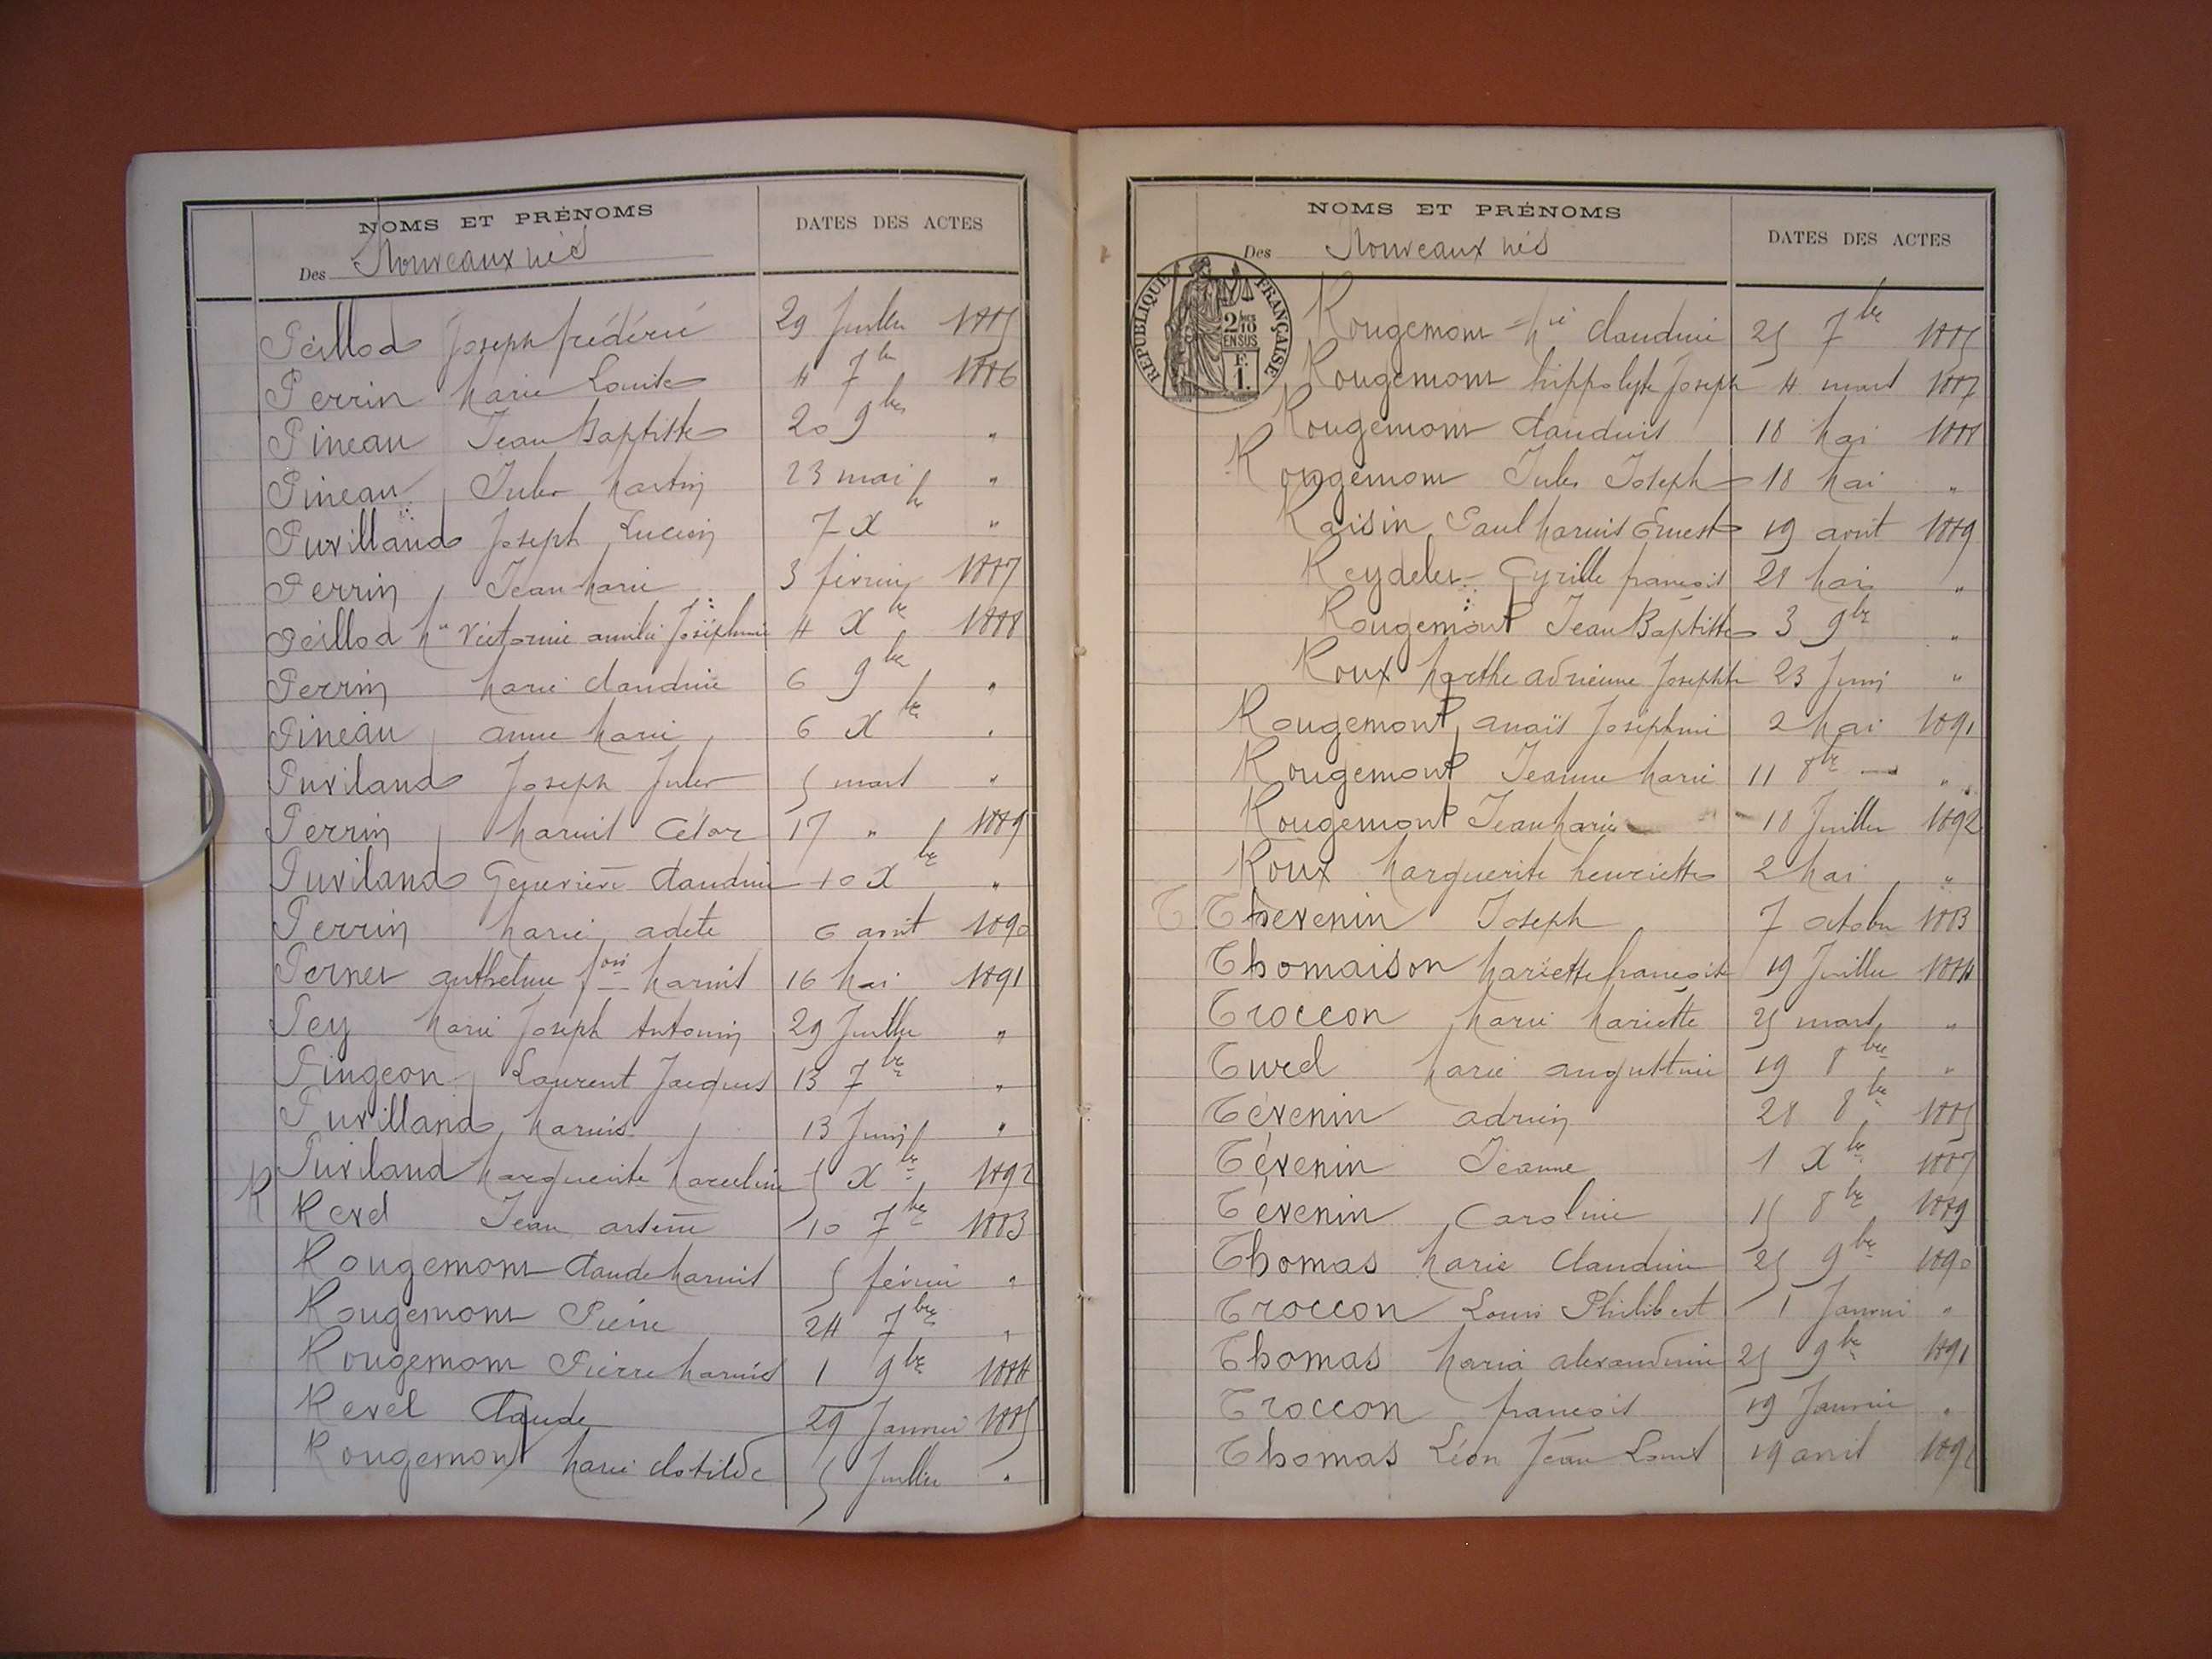 NOMS ET PRÉNOMS
DATES DES ACTES
Des Nouveaux nés
Peillod Joseph frédéric 29 Juillet 1885
Perrin Marie Louise 4 7bre 1886
Pineau Jean Baptiste 20 9bre "
Pineau Jules Martin 23 mai "
Puvilland Joseph Lucien 7 Xbre "
Perrin Jean Marie 3 février 1887
Peillod Mie Victorine amélie Joséphine 4 Xbre 1888
Perrin Marie Claudine 6 9bre "
Pineau anne Marie 6 Xbre "
Puviland Joseph Jules 5 mars "
Perrin Marius César 17 " 1889
Puviland Geneviève Claudine 10 Xbre "
Perrin Marie adèle 6 août 1890
Pernet anthelme fois Marius 16 Mai 1891
Pey Marie Joseph Antonin 29 Juillet "
Pingeon Laurent Jacques 13 7bre "
Puvilland Marius 13 Juin "
Puviland Marguerite Marceline 5 Xbre 1892
R Revel Jean arsène 10 7bre 1883
Rougemont Claude Marius 5 février "
Rougemont Pierre 24 7bre "
Rougemont Pierre Marius 1 9bre 1884
Revel Claude 29 Janvier 1885
Rougemont Marie Clotilde 5 Juillet "
NOMS ET PRÉNOMS
DATES DES ACTES
Des Nouveaux nés
RÉPUBLIQUE FRANÇAISE
2/10
EN SUS
F.
1.
Rougemont Mie Claudine 25 7bre 1885
Rougemont hippolyte Joseph 4 mars 1887
Rougemont Claudius 18 Mai 1888
Rougemont Jules Joseph 18 Mai "
Raisin Paul Marius Ernest 19 août 1889
Reydelet Cyrille françois 28 Mai "
Rougemont Jean Baptiste 3 9bre "
Roux Marthe adrienne Josephte 23 Juin "
Rougemont anaïs Joséphine 2 Mai 1891
Rougemont Jeanne Marie 11 8bre "
Rougemont Jean Marie 18 Juillet 1892
Roux Marguerite henriette 2 Mai "
T Thevenin Joseph 7 octobre 1883
Thomaison Mariette françoise 19 Juillet 1884
Troccon Marie Mariette 25 mars "
Turel Marie augustine 19 8bre "
Tévenin adrien 28 8bre 1885
Tévenin Jeanne 1 Xbre 1887
Tévenin Caroline 15 8bre 1889
Thomas Marie Claudine 25 9bre 1890
Troccon Louis Philibert 1 Janvier "
Thomas Maria alexandrine 25 9bre 1891
Troccon françois 19 Janvier "
Thomas Léon Jean Louis 19 avril 1892